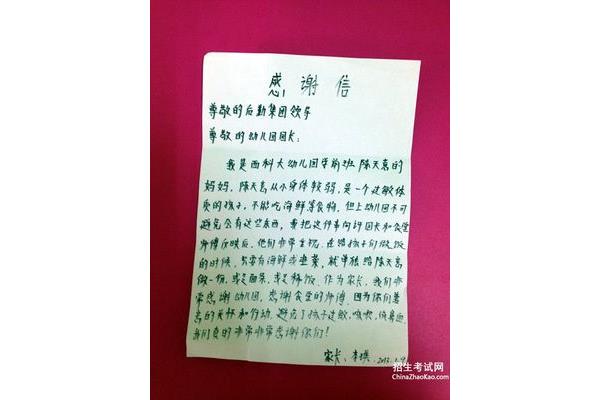 感谢信
尊敬的后勤集团领导
尊敬的幼儿园园长:
我是西科大幼儿园学前班陈天嘉的
妈妈,陈天嘉从小身体较弱,是一个过敏体
质的孩子,不能吃海鲜等食物,但上幼儿园不可
避免会有这些东西,我把这件事向园长和食堂
师傅反映后,他们非常重视,在给孩子们做饭
的时候,只要有海鲜或韭菜,就单独给陈天嘉
做一份,或是面条,或是稀饭,作为家长,我们非
常感谢幼儿园,感谢食堂的师傅,因为你们善
意的关怀和行动,避免了孩子过敏,咳嗽,
我们真的非常非常感谢你们!
家长:李瑛 2013.1.9
招生考试网
ChinaZhaoKao.com